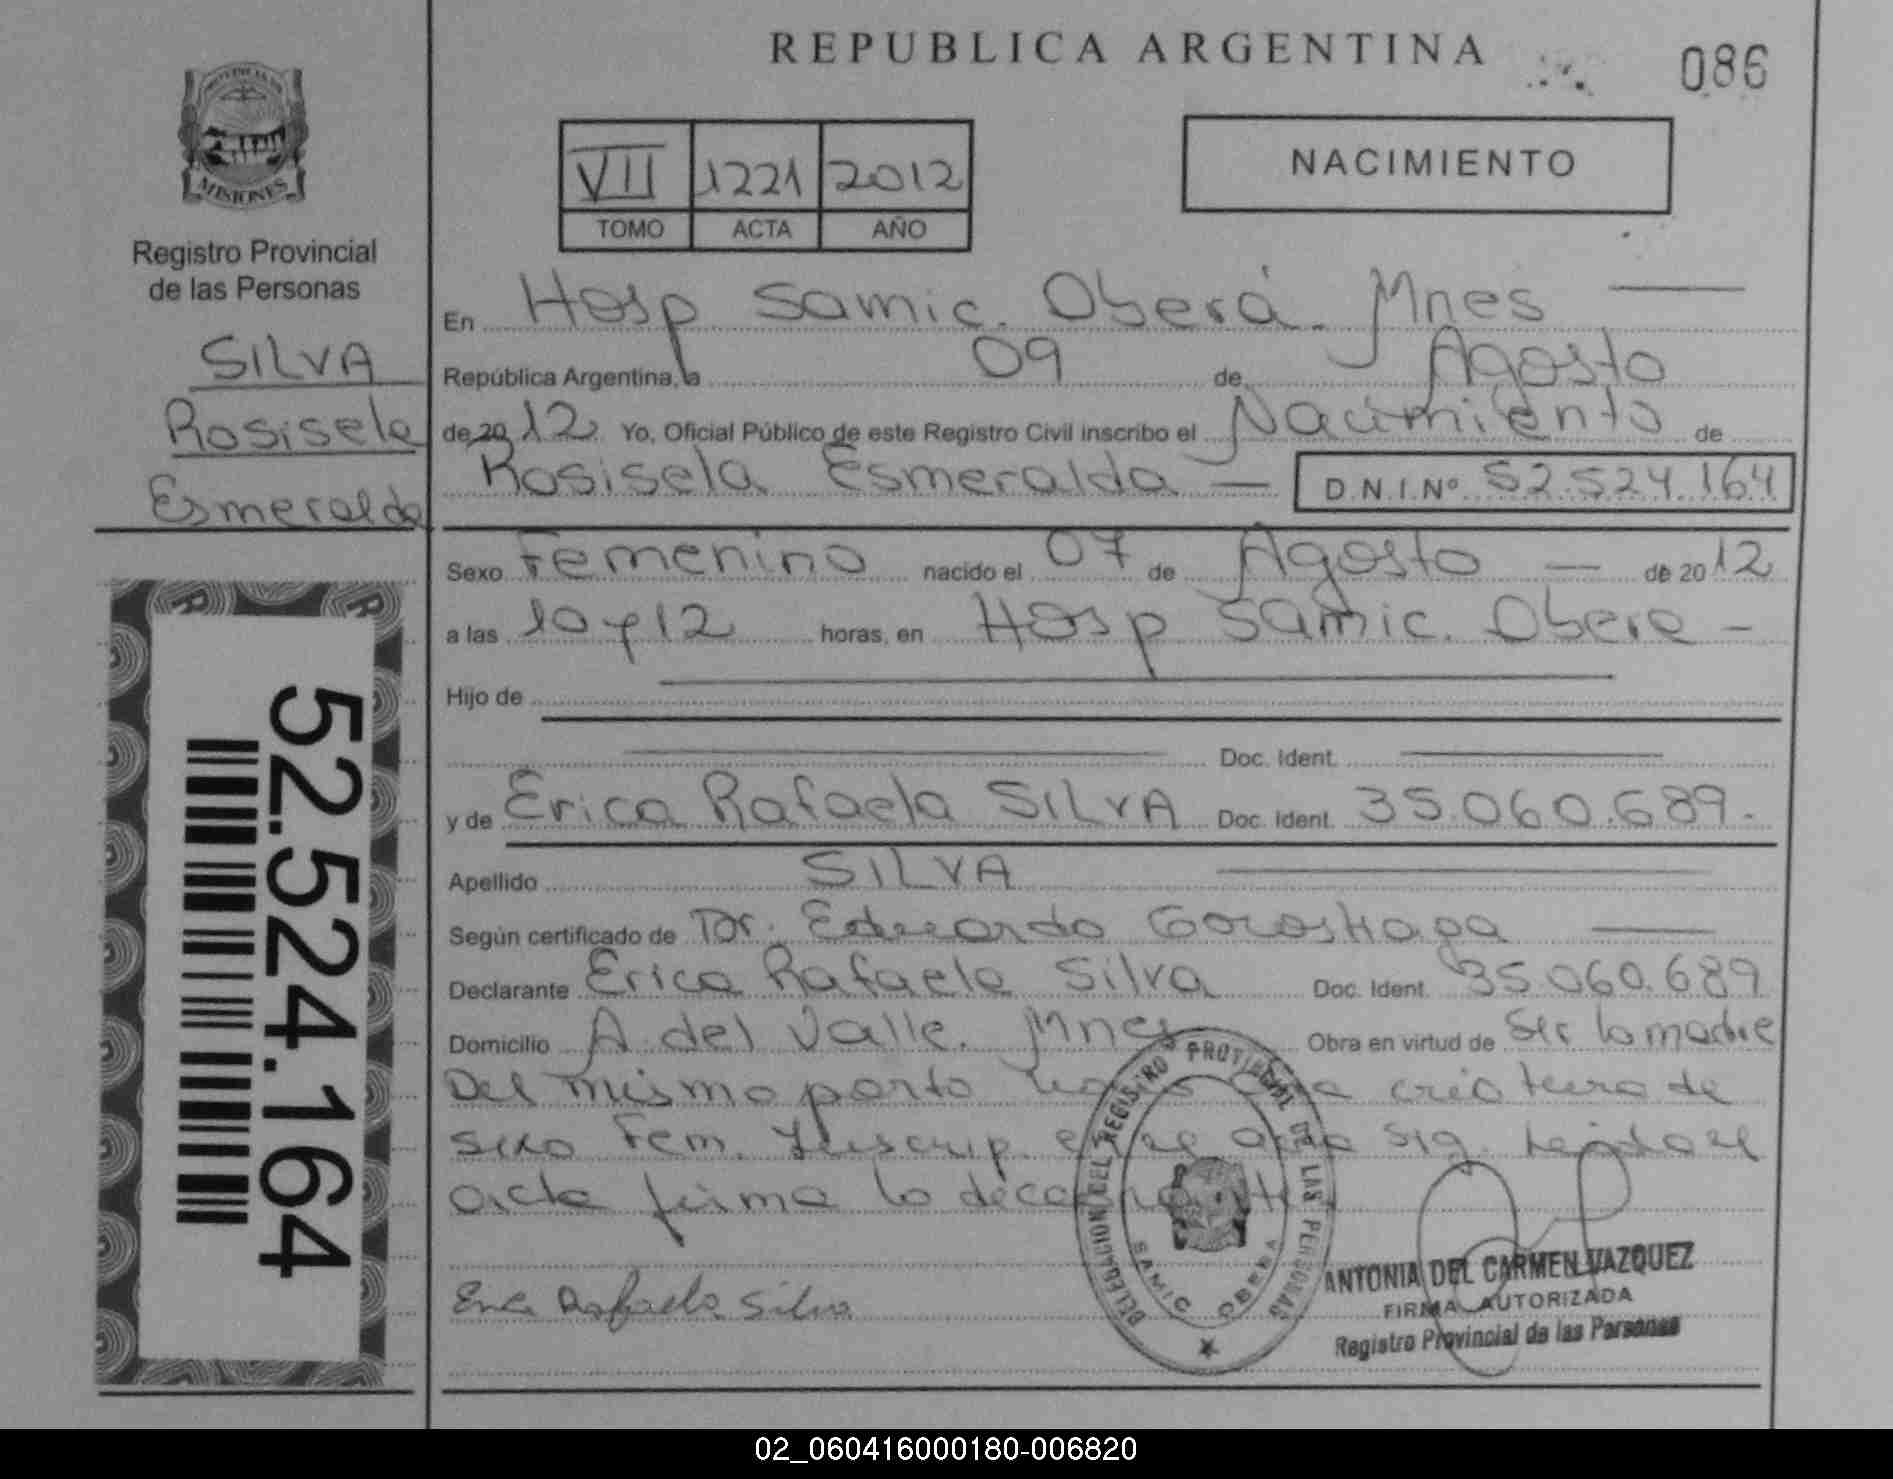 REPUBLICA ARGENTINA
086
PROVINCIA DE
MISIONES
Registro Provincial
de las Personas
SILVA
Rosisela
Esmeralda
52.524.164
VII 1221 2012
TOMO ACTA AÑO
NACIMIENTO
En Hosp Samic. Oberá. Mnes
República Argentina, a 09 de Agosto
de 2012 Yo, Oficial Público de este Registro Civil inscribo el Nacimiento de
Rosisela Esmeralda — D.N.I.Nº 52.524.164
Sexo Femenino nacido el 07 de Agosto — de 2012
a las 10 y 12 horas, en Hosp Samic. Obera -
Hijo de
Doc. Ident.
y de Erica Rafaela SILVA Doc. Ident. 35.060.689.
Apellido SILVA
Según certificado de Dr. Eduardo Gorostiaga
Declarante Erica Rafaela Silva Doc. Ident. 35.060.689
Domicilio A. del Valle. Mnes Obra en virtud de Ser la madre
Del mismo parto criatura de
sexo Fem. Inscrip. en el acta sig. Leida el
acta firma la declarante
Erica Rafaela Silva
DELEGACION DEL REGISTRO PROVINCIAL DE LAS PERSONAS
SAMIC OBERA
ANTONIA DEL CARMEN VAZQUEZ
FIRMA AUTORIZADA
Registro Provincial de las Personas
02_060416000180-006820